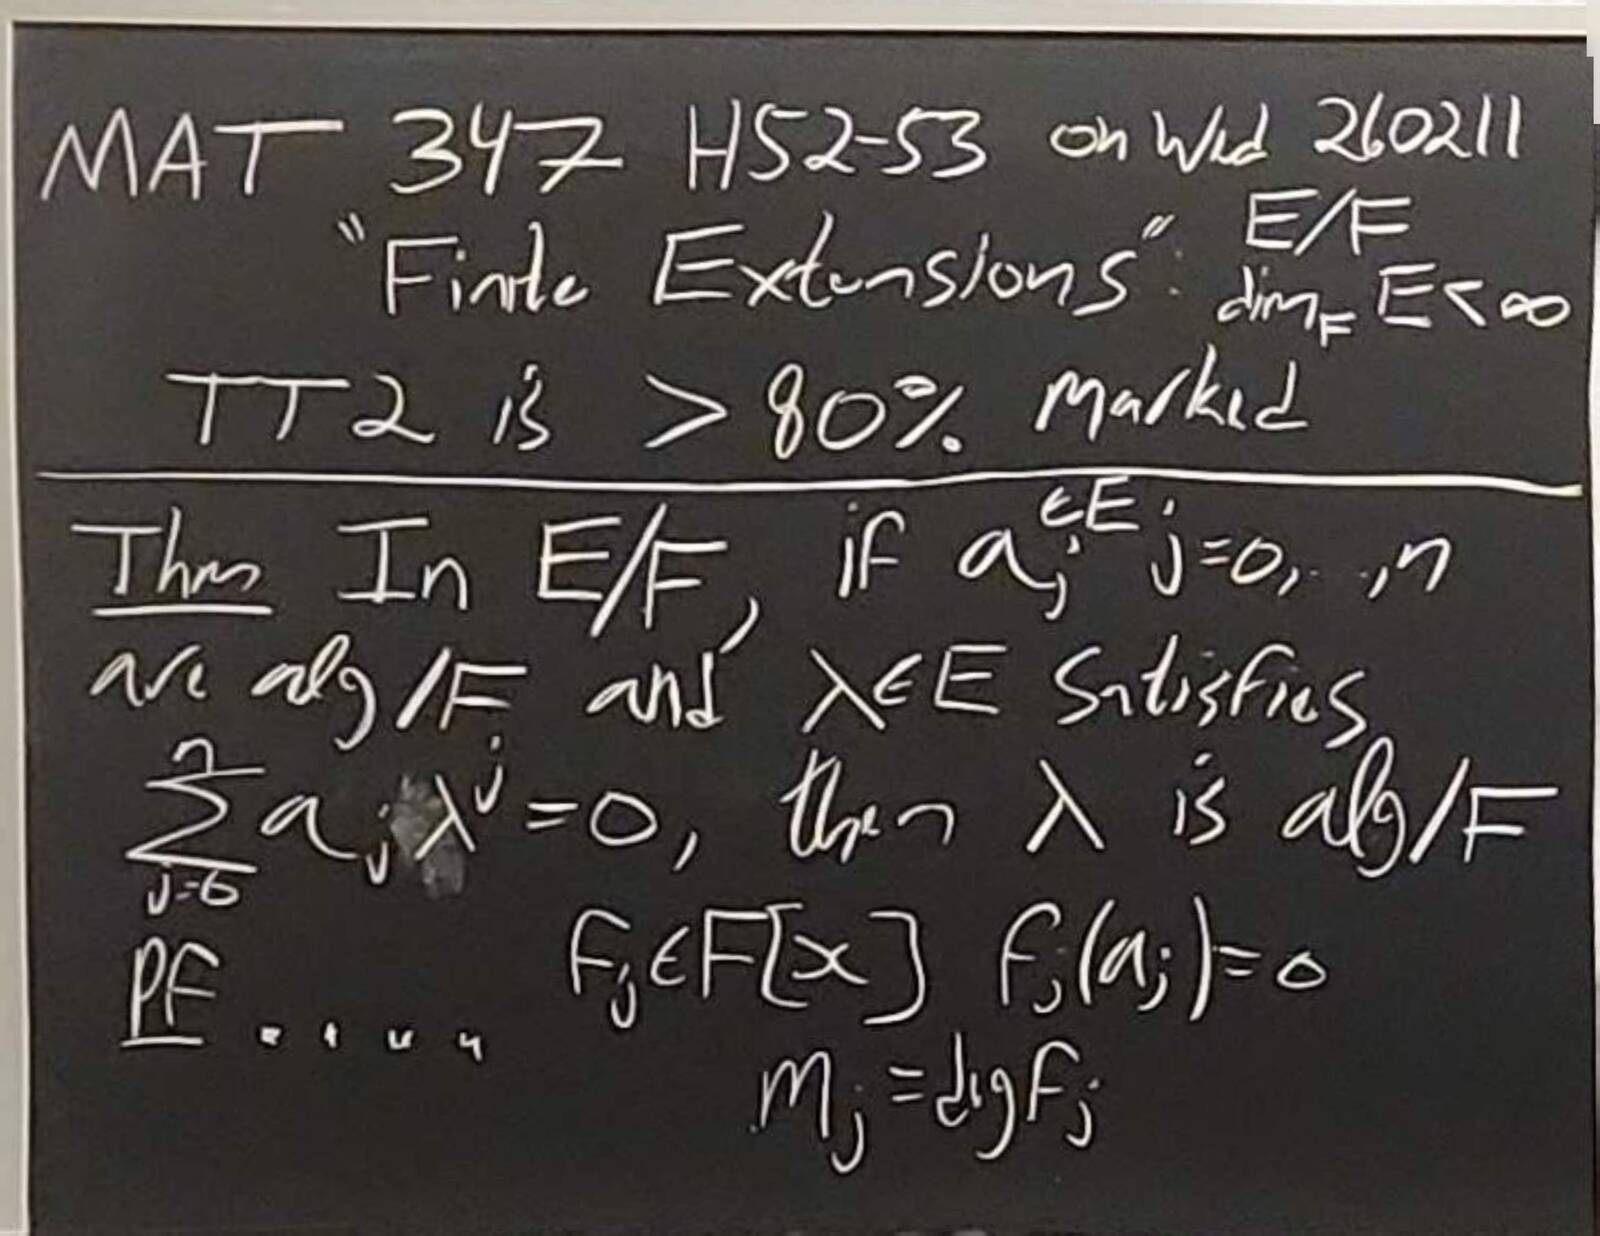 MAT 347 H52-53 on Wed 260211
"Finite Extensions": E/F
dim_F E < ∞
TT2 is > 80% marked
Thm In E/F, if a_j ∈E j=0,...,n
are alg/F and λ∈E satisfies
∑_{j=0}^{n} a_j λ^j = 0, then λ is alg/F
PF .... f_j ∈ F[x] f_j(a_j)=0
m_j = deg f_j